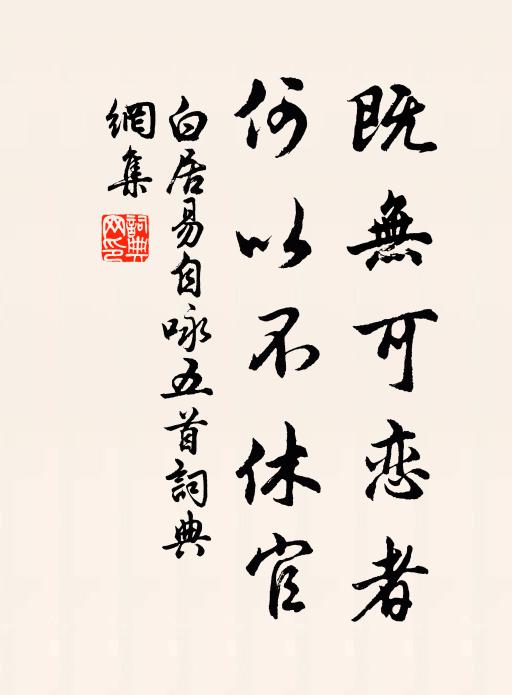 既無可恋者
何以不休官
白居易自咏五首詞典
網集
詞典
网印